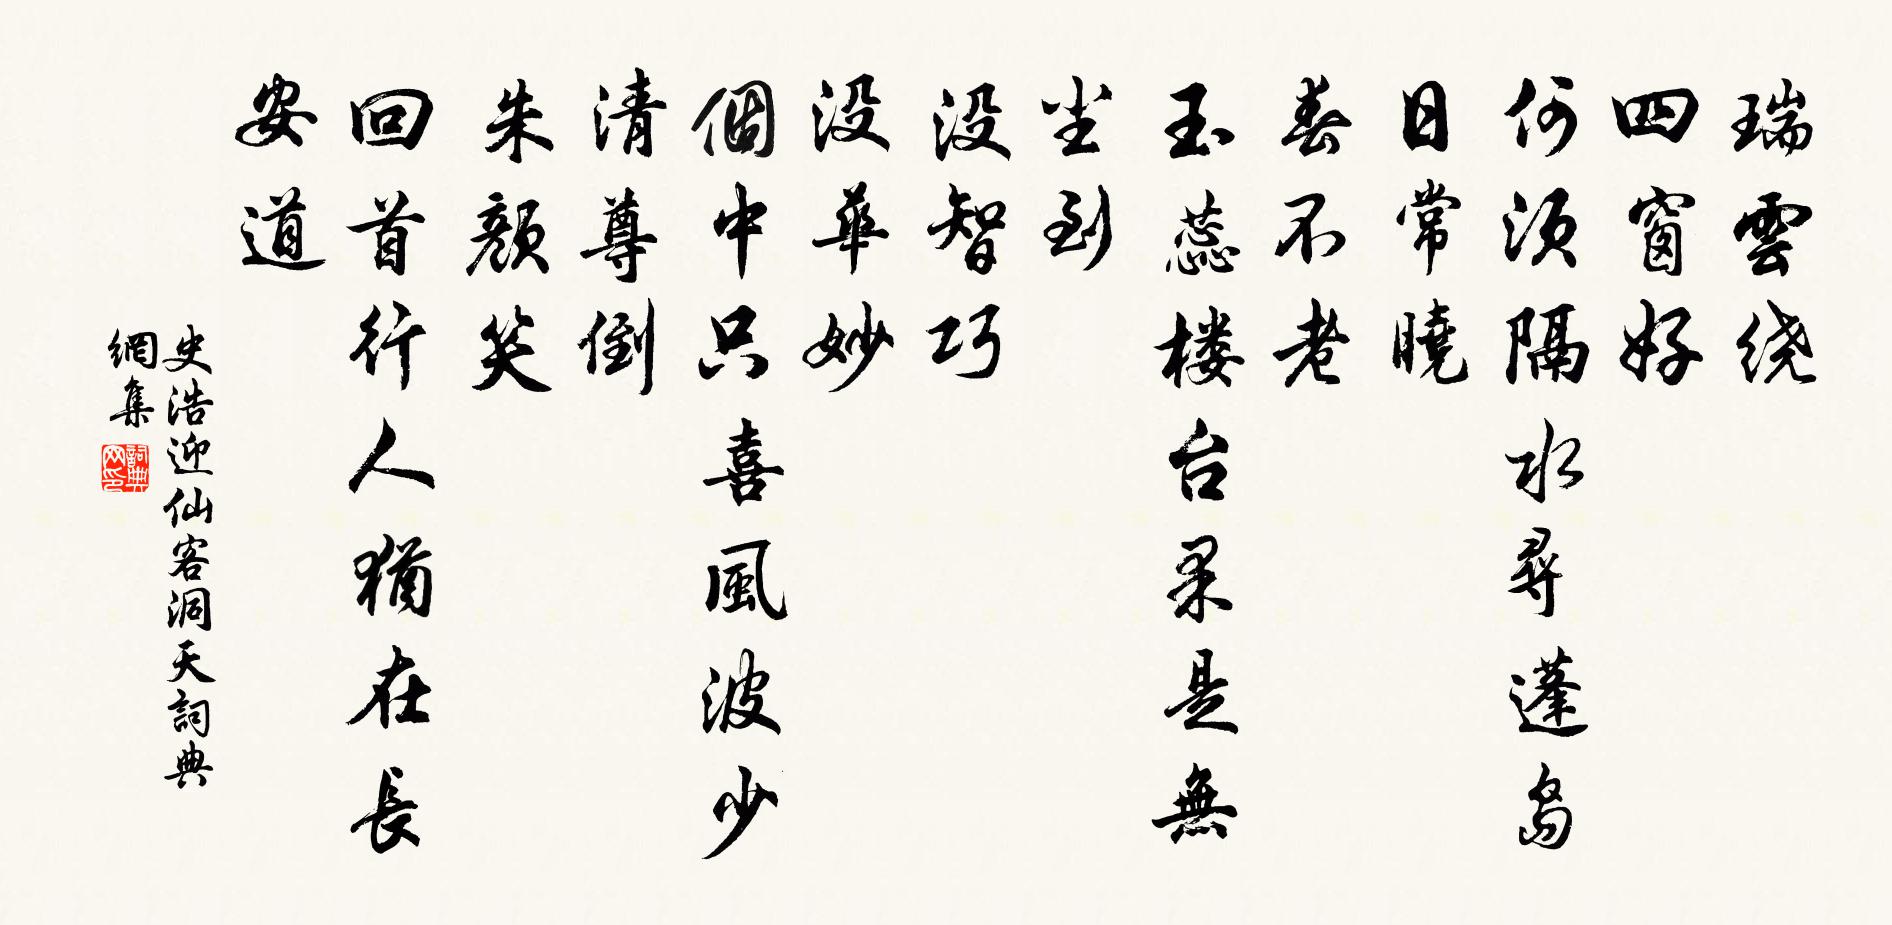 瑞雲绕
四窗好
何须隔水尋蓬島
日常曉
春不老
玉蕊楼台果是無
尘到
没智巧
没華妙
個中只喜風波少
清尊倒
朱颜笑
回首行人猶在長
安道
史浩迎仙客洞天詞典
網集
詞典网印